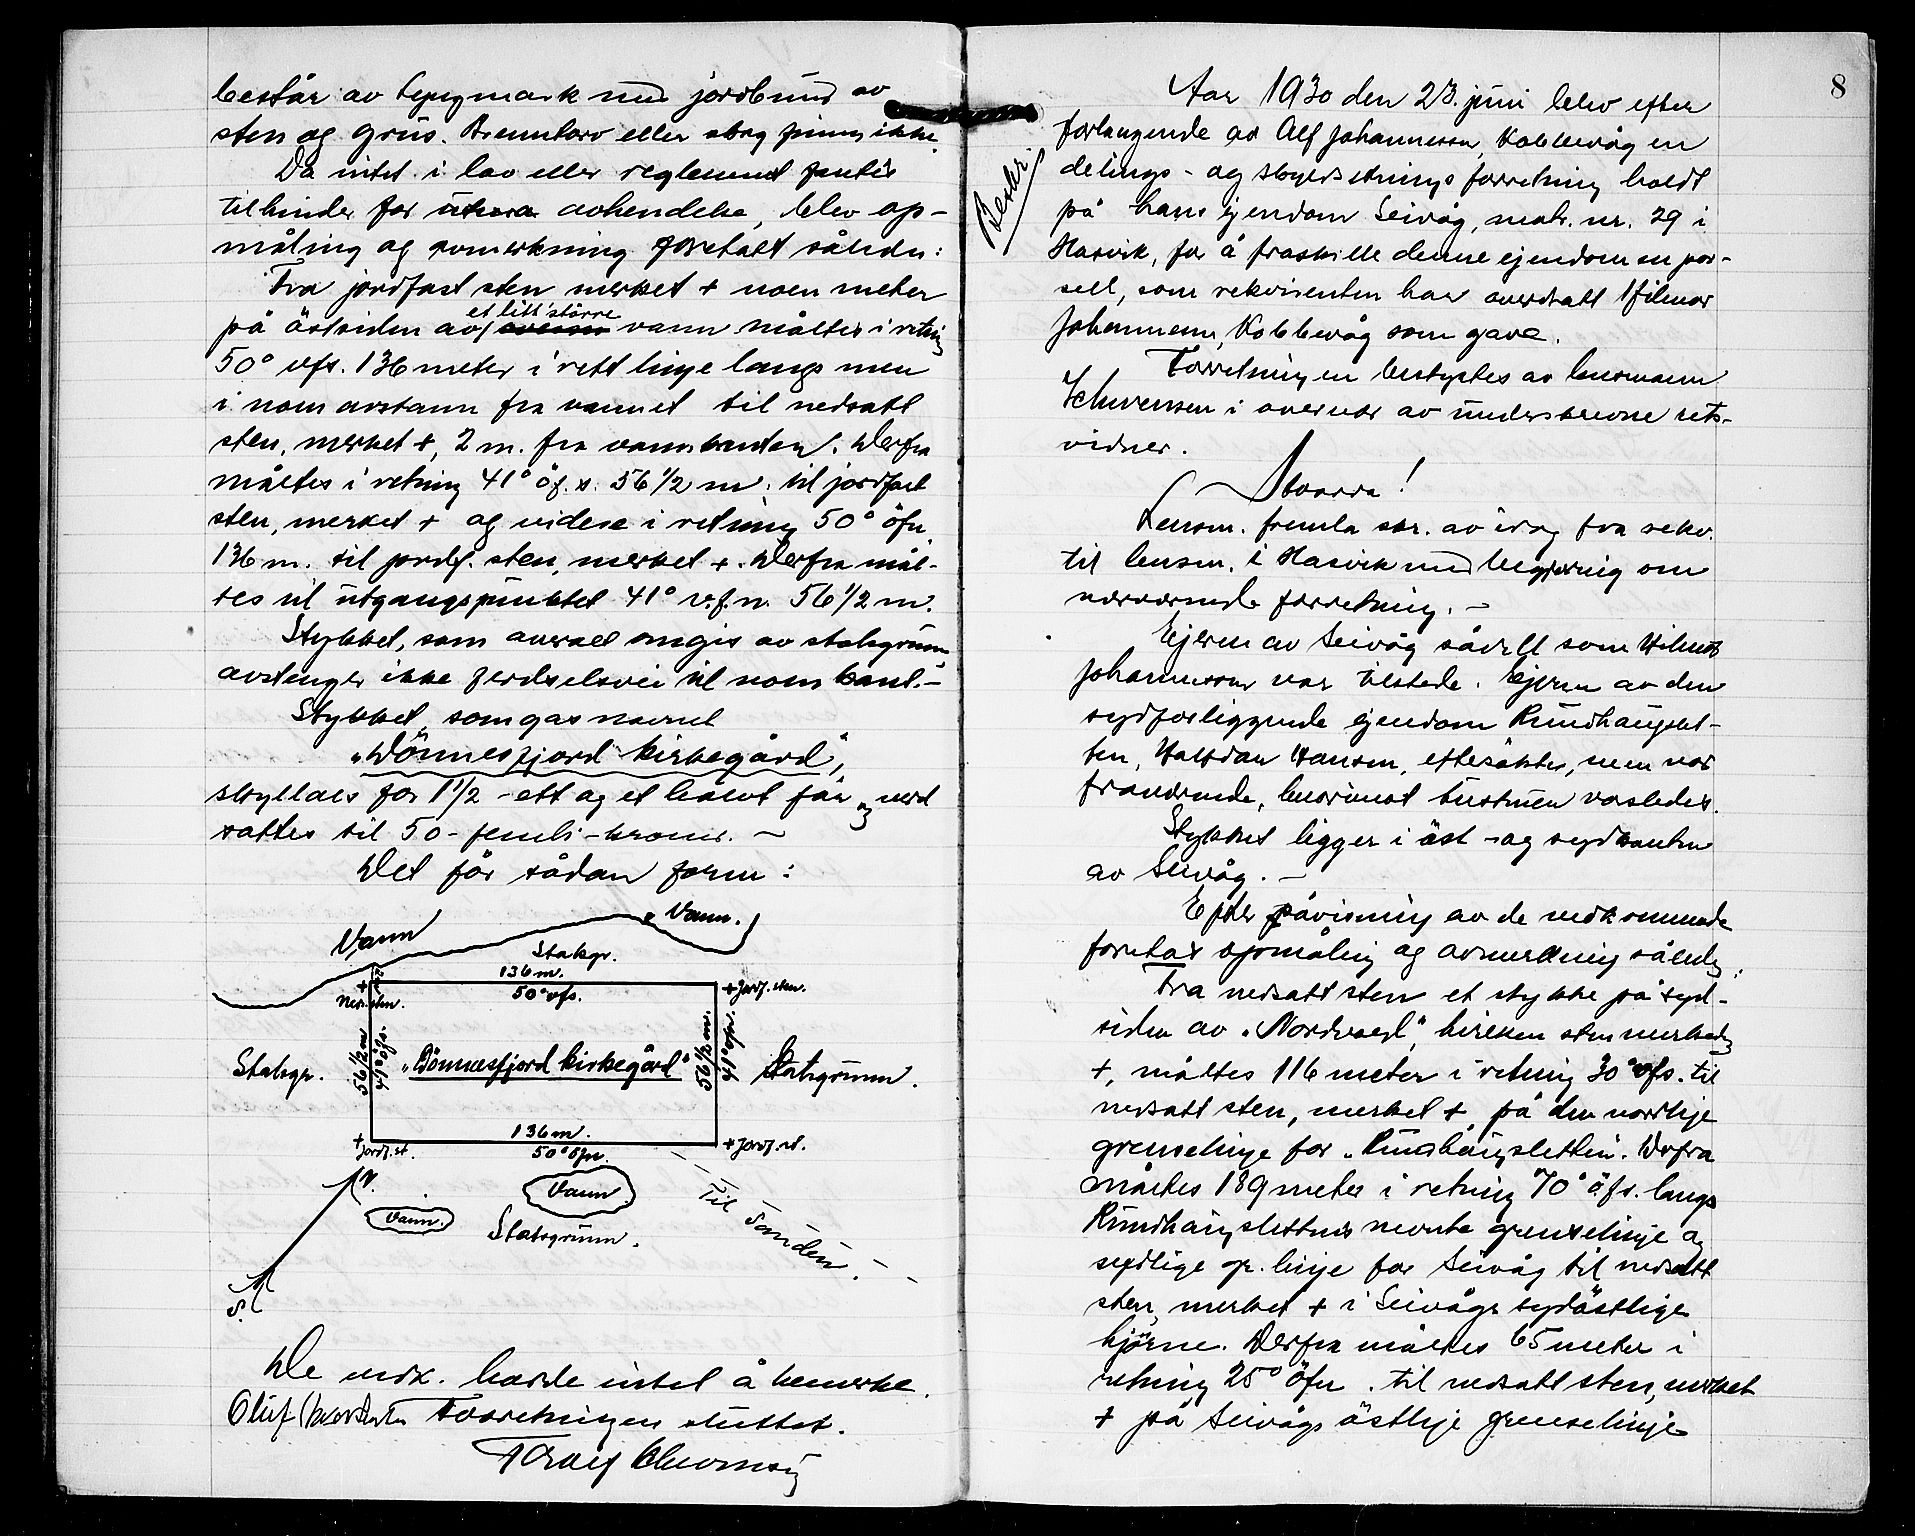 består av lyngmark med jordbund av
sten og grus. Brenntorv eller skog finnes ikke.
Da intet i lov eller reglement fantes
tilhinder for avhendelse, blev op-
måling og avmerkning foretatt således:
Fra jordfast sten merket + noen meter
på östsiden av et litt större vann måltes i retning
50° vfs. 136 meter i rett linje langs men
i noen avstann fra vannet til nedsatt
sten, merket +, 2 m. fra vannkanten. Derfra
måltes i retning 41° öf.s. 56 1/2 m. til jordfast
sten, merket + og videre i retning 50° öfn.
136 m. til jordf. sten, merket +. Derfra mål-
tes til utgangspunktet 41° v.f.n. 56 1/2 m.
Stykket, som overalt omgis av statsgrunn,
avstenger ikke ferdselsvei til noen kant.-
Stykket, som gas navnet
"Dönnesfjord kirkegård",
skyllaes for 1 1/2 - ett og et halvt före og verd
sattes til 50 - femti - kroner. -
Det får sådan form:
Vann
Vann.
Statsgr.
136 m.
50° vfs.
+ Jordf. sten.
+ Ned. sten.
Statsgr.
56 1/2 m
41° öfs.
"Dönnesfjord kirkegård"
56 1/2 m.
41° vfn.
Statsgrunn.
136 m.
50° öfn.
+ Jordf. st.
+ Jordf. st.
N.
Vann.
Vann
Statsgrunn.
Til Sanden.
S.
De vedk. hadde intet å bemerke.
Oluf Forretningen sluttet.
Aar 1930 den 23. juni blev efter
forlangende av Alf Johannessen, Kobbevåg en
delings- og skyldsetningsforretning holdt
på hans ejendom Seivåg, matr. nr. 29 i
Hasvik, for å fraskille denne ejendom en par-
sell, som rekvirenten har overdratt Hilmar
Johannessen, Kobbevåg som gave.
Forretningen bestyrtes av lensmann
i overvær av underskrevne rets-
vidner.
Beskr.
8
Lensm. fremla skr. av idag fra rekv.
til lensm. i Hasvik med begjæring om
nærværende forretning. -
Ejeren av Seivåg såvelt som Hilmar
Johannessen var tilstede. Ejeren av den
sydforliggende ejendom Rundhaugslet-
ten, Halfdan Hansen, eftesöktes, men var
fraværende, hvorimot hustruen varsledes.
Stykket ligger i öst - og sydkanten
av Seivåg. -
Efter påvisning av de vedkommende
foretas opmåling og avmerkning således:
Fra nedsatt sten et stykke på syd-
siden av "Nordvael", hvilken sten merkedes
+, måltes 116 meter i retning 30° vfs. til
nedsatt sten, merket + på den nordlige
grenselinje for "Rundhaugsletten". Derfra
måltes 189 meter i retning 70° öfs. langs
Rundhaugslettens nevnte grenselinje og
sydlige gr. linje for Seivåg til nedsatt
sten, merket + i Seivågs sydöstlige
hjörne. Derfra måltes 65 meter i
retning 25° öfn. til nedsatt sten, merket
+ på Seivågs östlige grenselinje